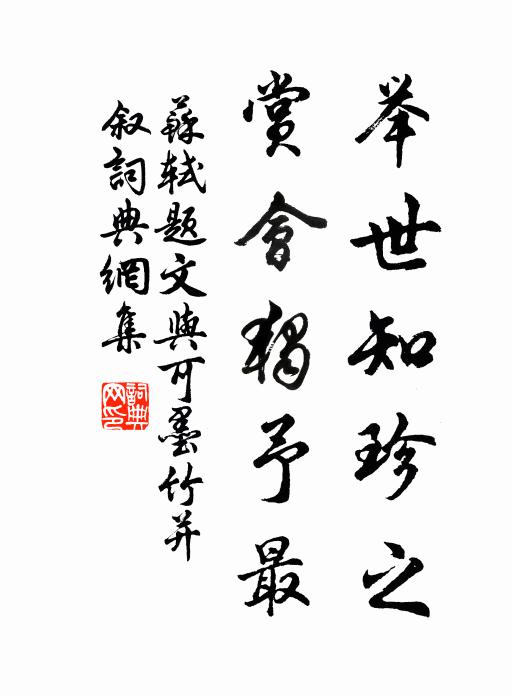 举世知珍之
赏會獨予最
蘇軾题文與可墨竹并
叙詞典網集
詞典
网印